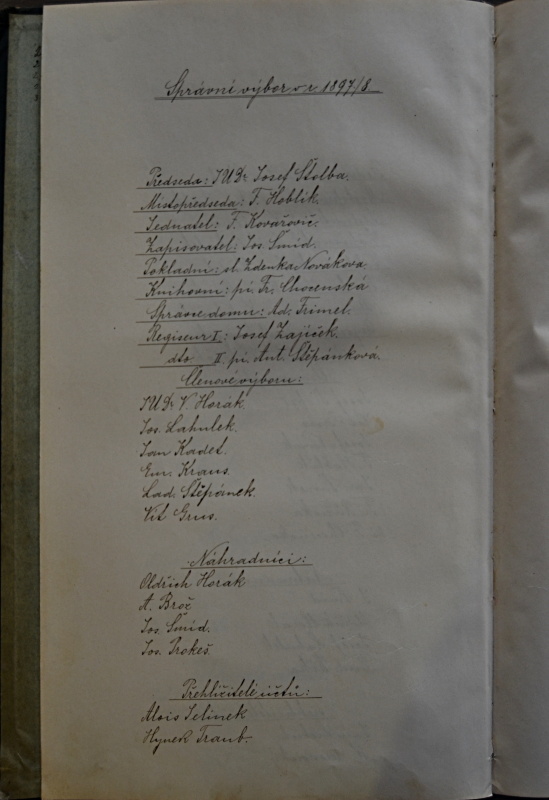 Správní výbor v r 1897/8.
Předseda: JUDr Josef Štolba.
Místopředseda: F. Hoblík.
Jednatel: F. Kovářovič.
Zapisovatel: Jos. Šmíd.
Pokladní: sl. Zdenka Nováková
Knihovní: pí. Fr. Chocenská
Správce domu: Ad. Frimel.
Regiseur I: Josef Zajíček.
dto. II. pí. Ant. Štěpánková.
Členové výboru:
JUDr V. Horák.
Jos. Lahulek.
Jan Kadet.
Em. Kraus.
Lad. Štěpánek.
Vít Grus.
Náhradníci:
Oldřich Horák
A. Brož
Jos. Šmíd.
Jos. Prokeš.
Přehlížitelé účtů:
Alois Jelinek
Hynek Traub.